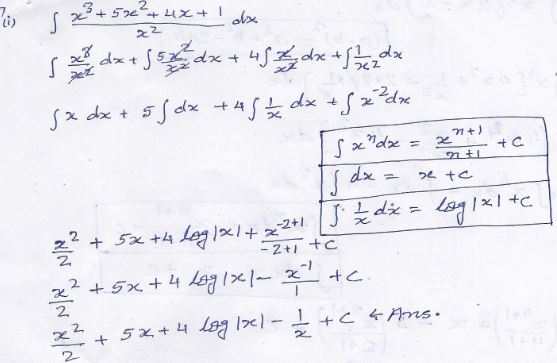 (i) ∫ x³ + 5x² + 4x + 1 / x² dx
∫ x³/x² dx + ∫ 5x²/x² dx + 4∫ x/x² dx + ∫ 1/x² dx
∫ x dx + 5 ∫ dx + 4 ∫ 1/x dx + ∫ x⁻² dx
∫ xⁿ dx = xⁿ⁺¹/n+1 + c
∫ dx = x + c
∫ 1/x dx = log |x| + c
x²/2 + 5x + 4 log |x| + x⁻²⁺¹/-2+1 + c
x²/2 + 5x + 4 log |x| - x⁻¹/1 + c
x²/2 + 5x + 4 log |x| - 1/x + c ← Ans.